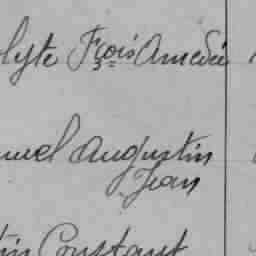 olyte Fçois Amédée
nuel Augustin
Jean
tin Constant